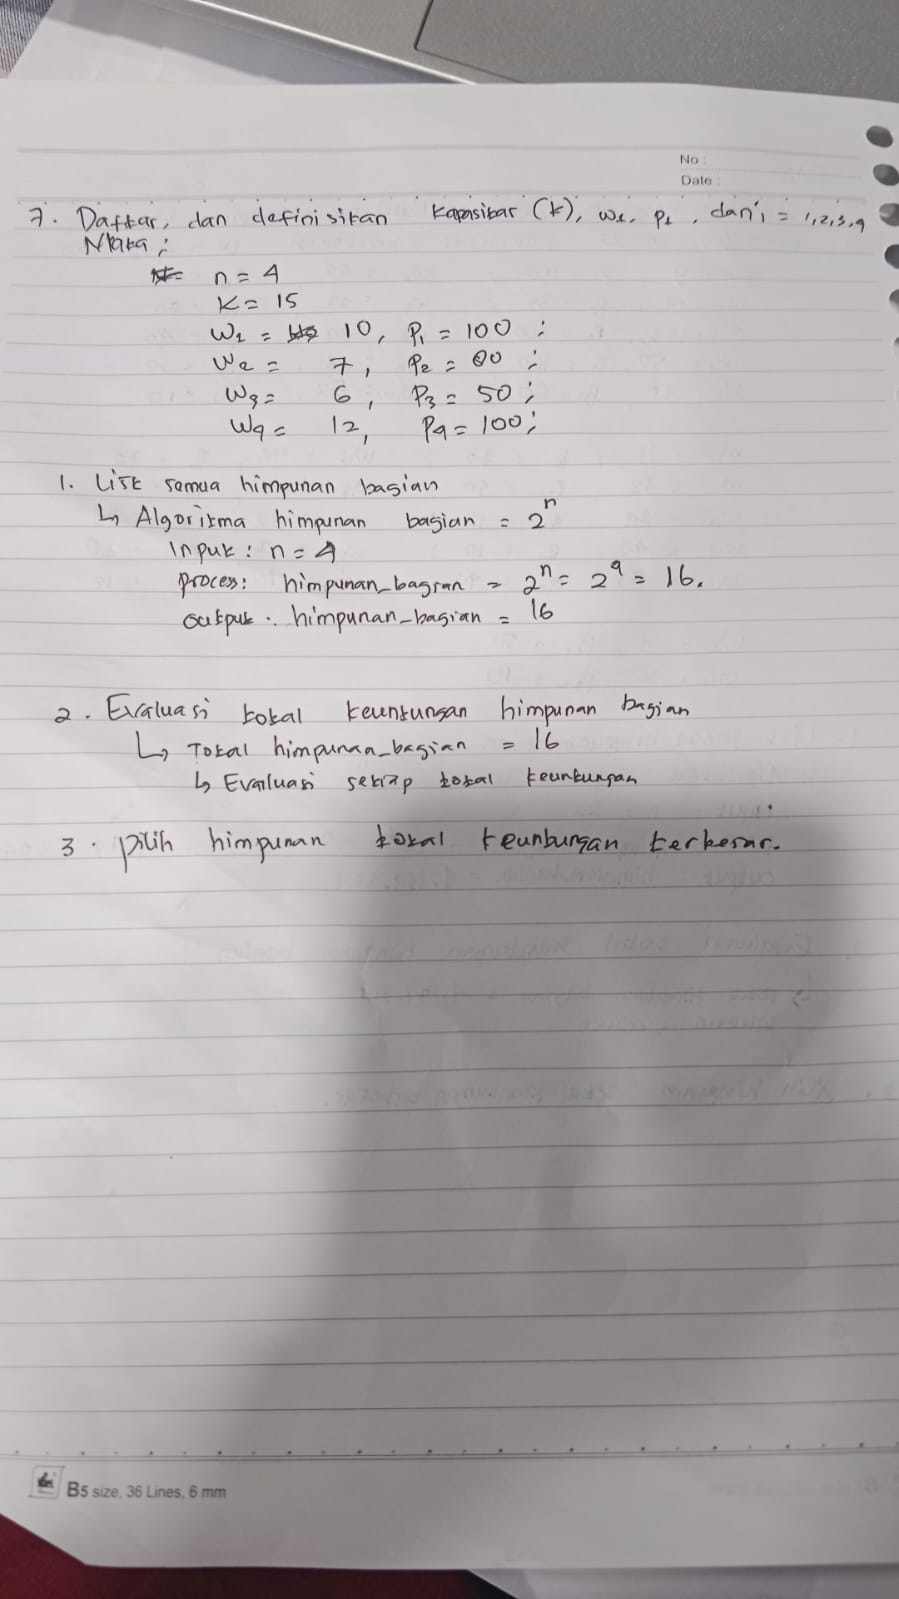 No :
Date :
7. Daftar, dan definisikan kapasitas (k), wi, pi, dan i = 1,2,3,4
Maka :
n = 4
K = 15
W1 = 10, P1 = 100 ;
W2 = 7, P2 = 80 ;
W3 = 6, P3 = 50 ;
W4 = 12, P4 = 100 ;
1. List semua himpunan bagian
↳ Algoritma himpunan bagian = 2^n
Input : n = 4
proces : himpunan_bagian = 2^n = 2^4 = 16.
output : himpunan_bagian = 16
2. Evaluasi total keuntungan himpunan bagian
↳ Total himpunan_bagian = 16
↳ Evaluasi setiap total keuntungan
3. pilih himpunan total keuntungan terbesar.
B5 size, 36 Lines, 6 mm